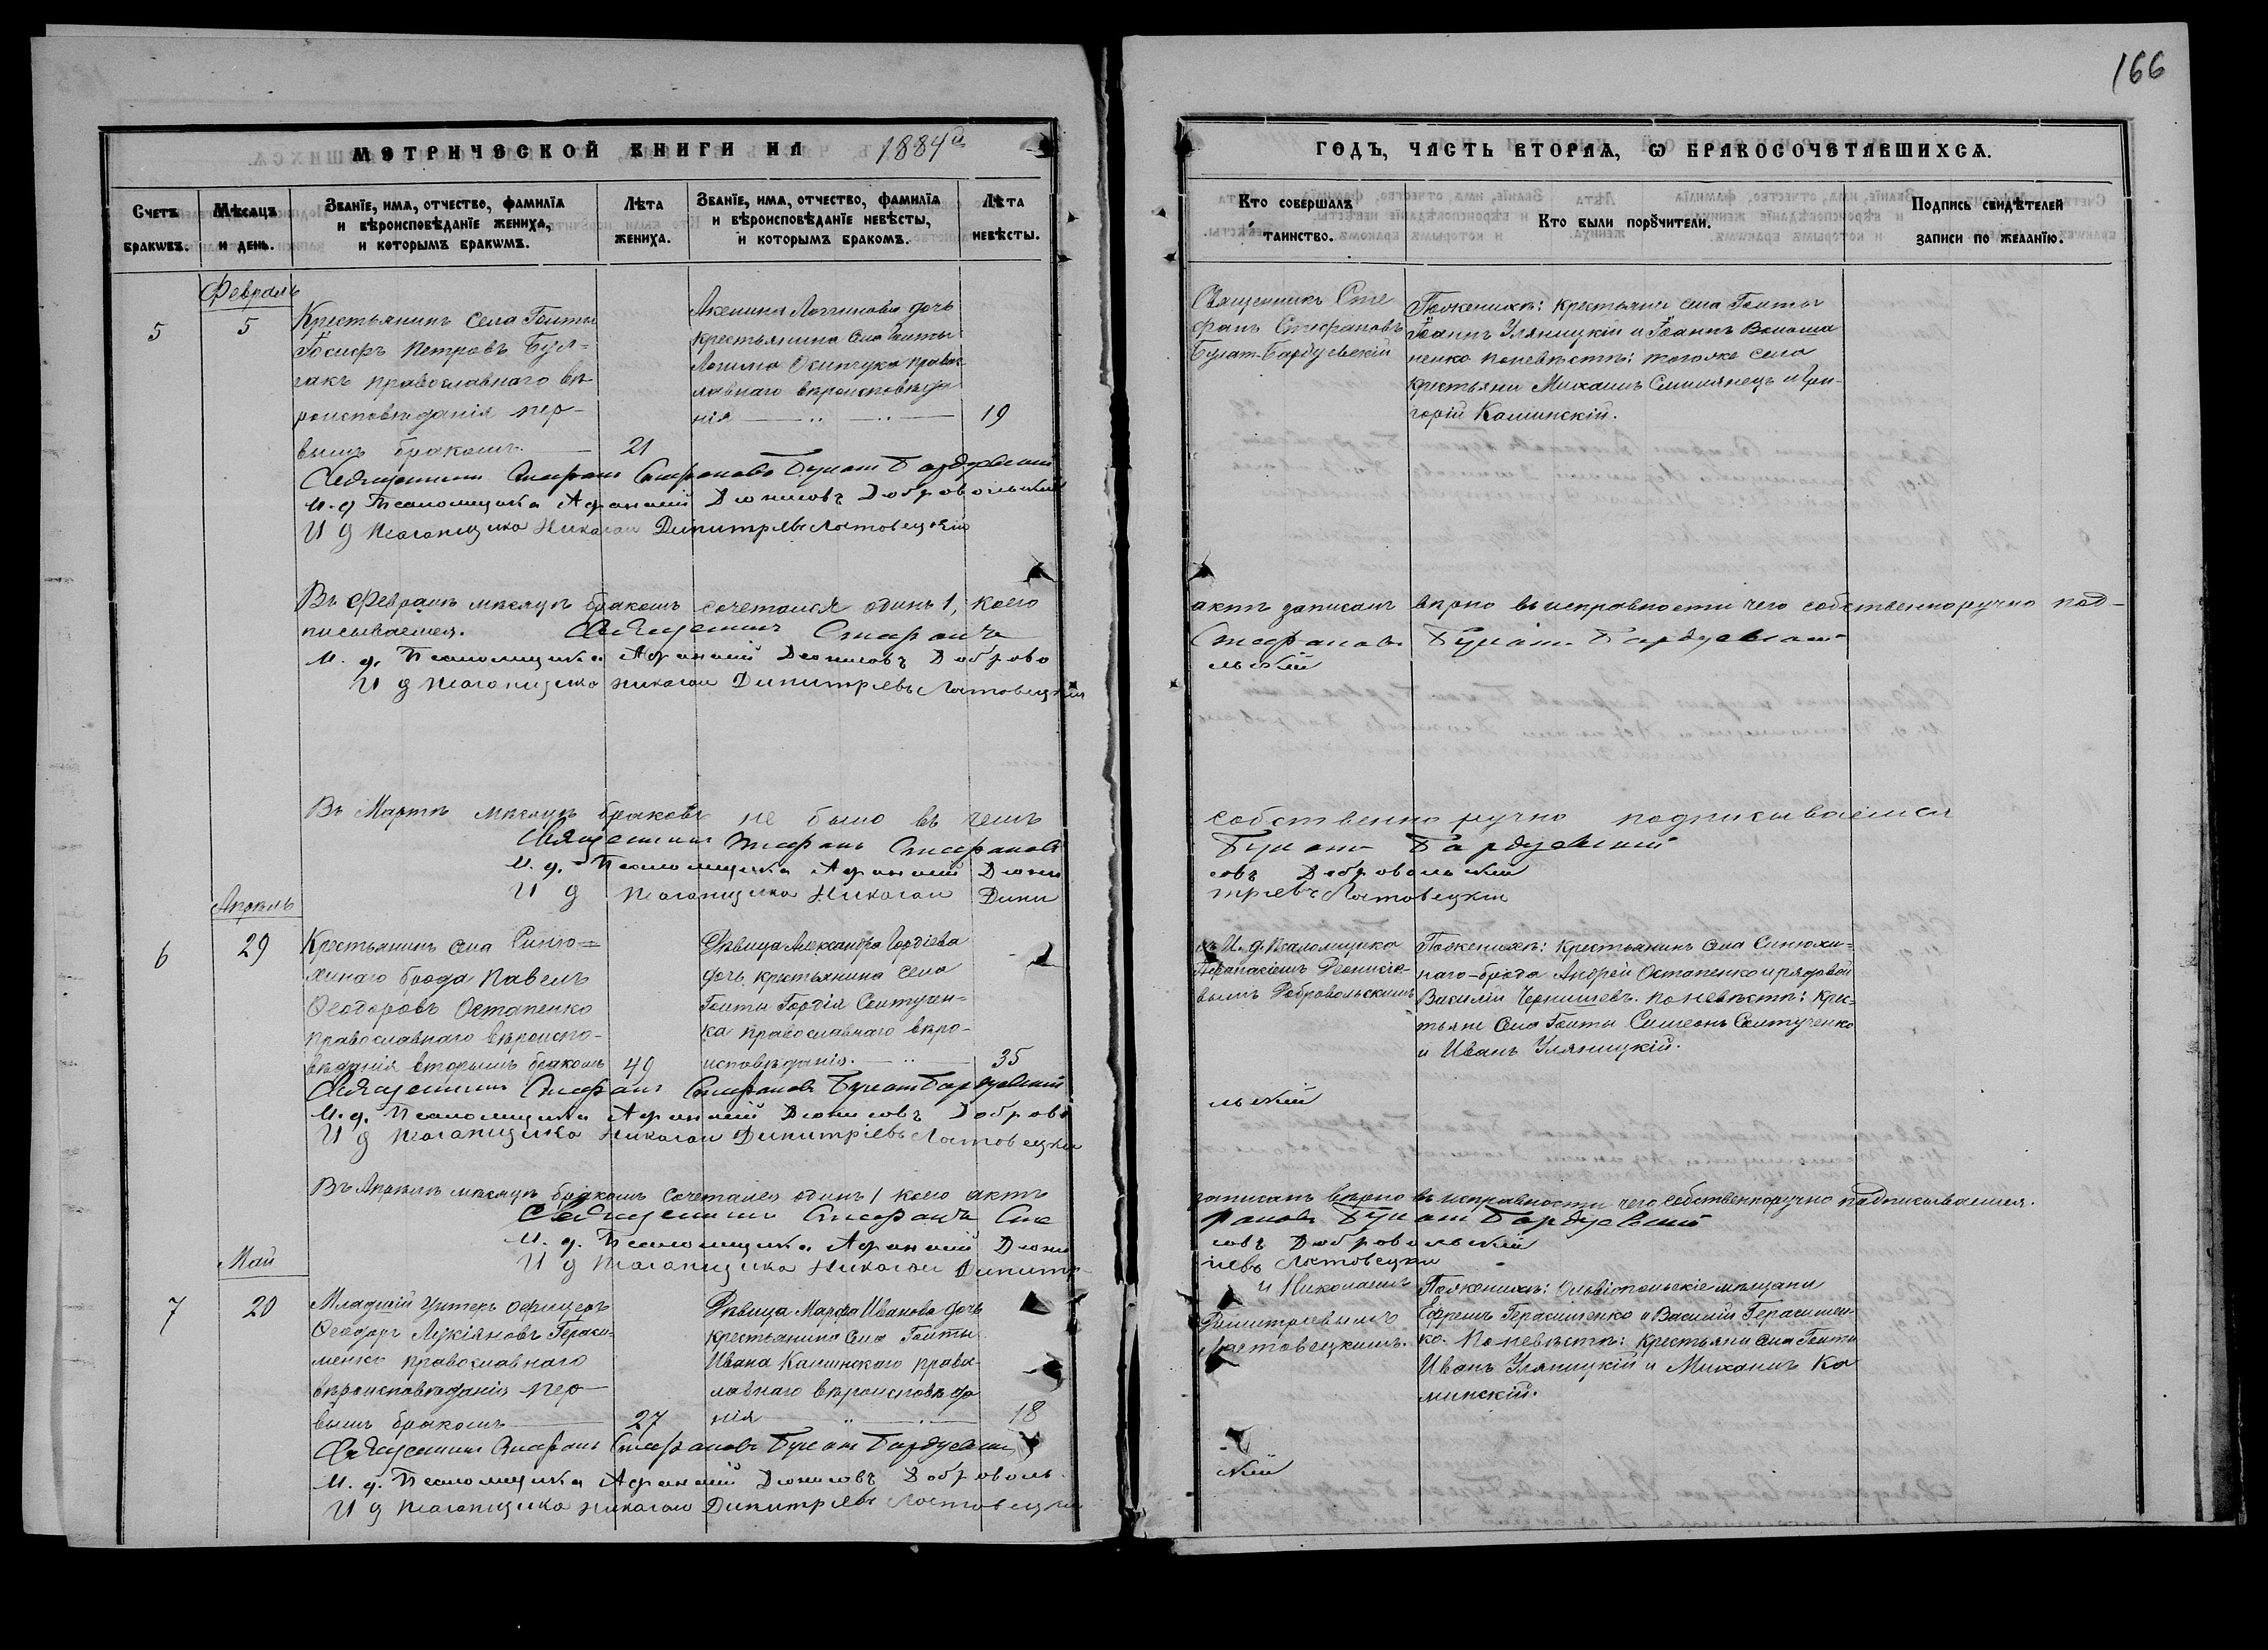 166
МЕТРИЧЕСКОЙ КНИГИ НА 1884й
ГОДЪ, ЧАСТЬ ВТОРАЯ, Ѡ БРАКОСОЧЕТАВШИХСЯ.
Счетъ браковъ.
Мѣсяцъ и день.
Званїе, имя, отчество, фамилїя
и вѣроисповѣданїе жениха,
и которымъ бракомъ.
Лѣта
жениха.
Званїе, имя, отчество, фамилїя
и вѣроисповѣданїе невѣсты,
и которымъ бракомъ.
Лѣта
невѣсты.
Кто совершалъ
таинство.
Кто были порꙋчители.
Подпись свидѣтелей
записи по желанїю.
Февраль
5
5
Крестьянинъ села Гопты
Іосифъ Петровъ
православнаго вѣ-
роисповѣданія пер-
вымъ бракомъ.
21
дочь
крестьянина села
правос-
лавнаго вѣроисповѣда
нія
19
Священникъ Сте
фанъ Стефановъ
Булат-Бардуевскій
По женихѣ: крестьяне села
Іоаннъ Уляницкій и Іоаннъ Волоша
ненко по невѣстѣ: того же села
крестьяни Михаилъ и Гри-
горій Калинскій.
Священникъ Стефанъ Стефановъ Булат Бардуевский
И. д. Псаломщика Афанасий Дионисовъ Добровольский
И д Псаломщика Николай Димитрiевъ Лотовецкiй
Въ Февралѣ мѣсяцѣ бракомъ сочетался одинъ 1, коего
актъ записанъ вѣрно въ исправности чего собственноручно под-
писываемся. Священникъ Стефанъ
Стефановъ Булат Бардуевский
И. д. Псаломщика Афанасий Дионисовъ Доброво
льский
И д Псаломщика Николай Димитрiевъ Лотовецкiй
Въ Мартѣ мѣсяцѣ браковъ не было въ чемъ
собственно ручно подписываемся
Священникъ Стефанъ Стефановъ
Булат Бардуевский
И. д. Псаломщика Афанасий Диони
совъ Добровольский
И д Псаломщика Николай Дими
трiевъ Лотовецкiй
Апрѣль
6
29
Крестьянинъ села Синю=
хинаго брода Павелъ
Ѳеодоровъ Остапенко
православнаго вѣроиспо-
вѣданія вторымъ бракомъ
49
Дѣвица Александра Гордіева
дочь крестьянина села
Гордія
православнаго вѣро-
исповѣданія.
35
съ И. д. псаломщика
Афанасіемъ Діонисіе-
вымъ Добровольскимъ
По женихѣ: крестьянинъ села Синюхи=
наго-брода Андрей Остапенко и рядовой
Василій Чернишевъ. по невѣстѣ: крес-
тьяне села Симеонъ
и Иванъ Уляницкій.
Священникъ Стефанъ Стефановъ Булат Бардуевский
И. д. Псаломщика Афанасий Дионисовъ Доброво
льский
И д Псаломщика Николай Димитрiевъ Лотовецкiй
Въ Апрѣлѣ мѣсяцѣ бракомъ сочетался одинъ 1 коего актъ
записанъ вѣрно въ исправности чего собственноручно подписываемся.
Священникъ Стефанъ Сте
фановъ Булат Бардуевский
И. д. Псаломщика Афанасий Диони
совъ Добровольский
И д Псаломщика Николай Димитр
iевъ Лотовецкiй
Май
7
20
Младшій Унтеръ офицеръ
Ѳеодоръ Лукіяновъ Гераси-
менко православнаго
вѣроисповѣданія пер-
вымъ бракомъ
27
Дѣвица Марфа Иванова дочь
крестьянина села
Ивана Калинскаго правос-
лавнаго вѣроисповѣда
нія
18
и Николаемъ
Димитріевымъ
Лотовецкимъ.
По женихѣ: Ольвіопольскіе мѣщани
Ефремъ Герасименко и Василій Герасимен-
ко. По невѣстѣ: крестьяни села
Иванъ Уляницкій и Михаилъ Ка
линскій.
Священникъ Стефанъ Стефановъ Булат Бардуевский
И. д. Псаломщика Афанасий Дионисовъ Доброволь
ский
И д Псаломщика Николай Димитрiевъ Лотовецкiй